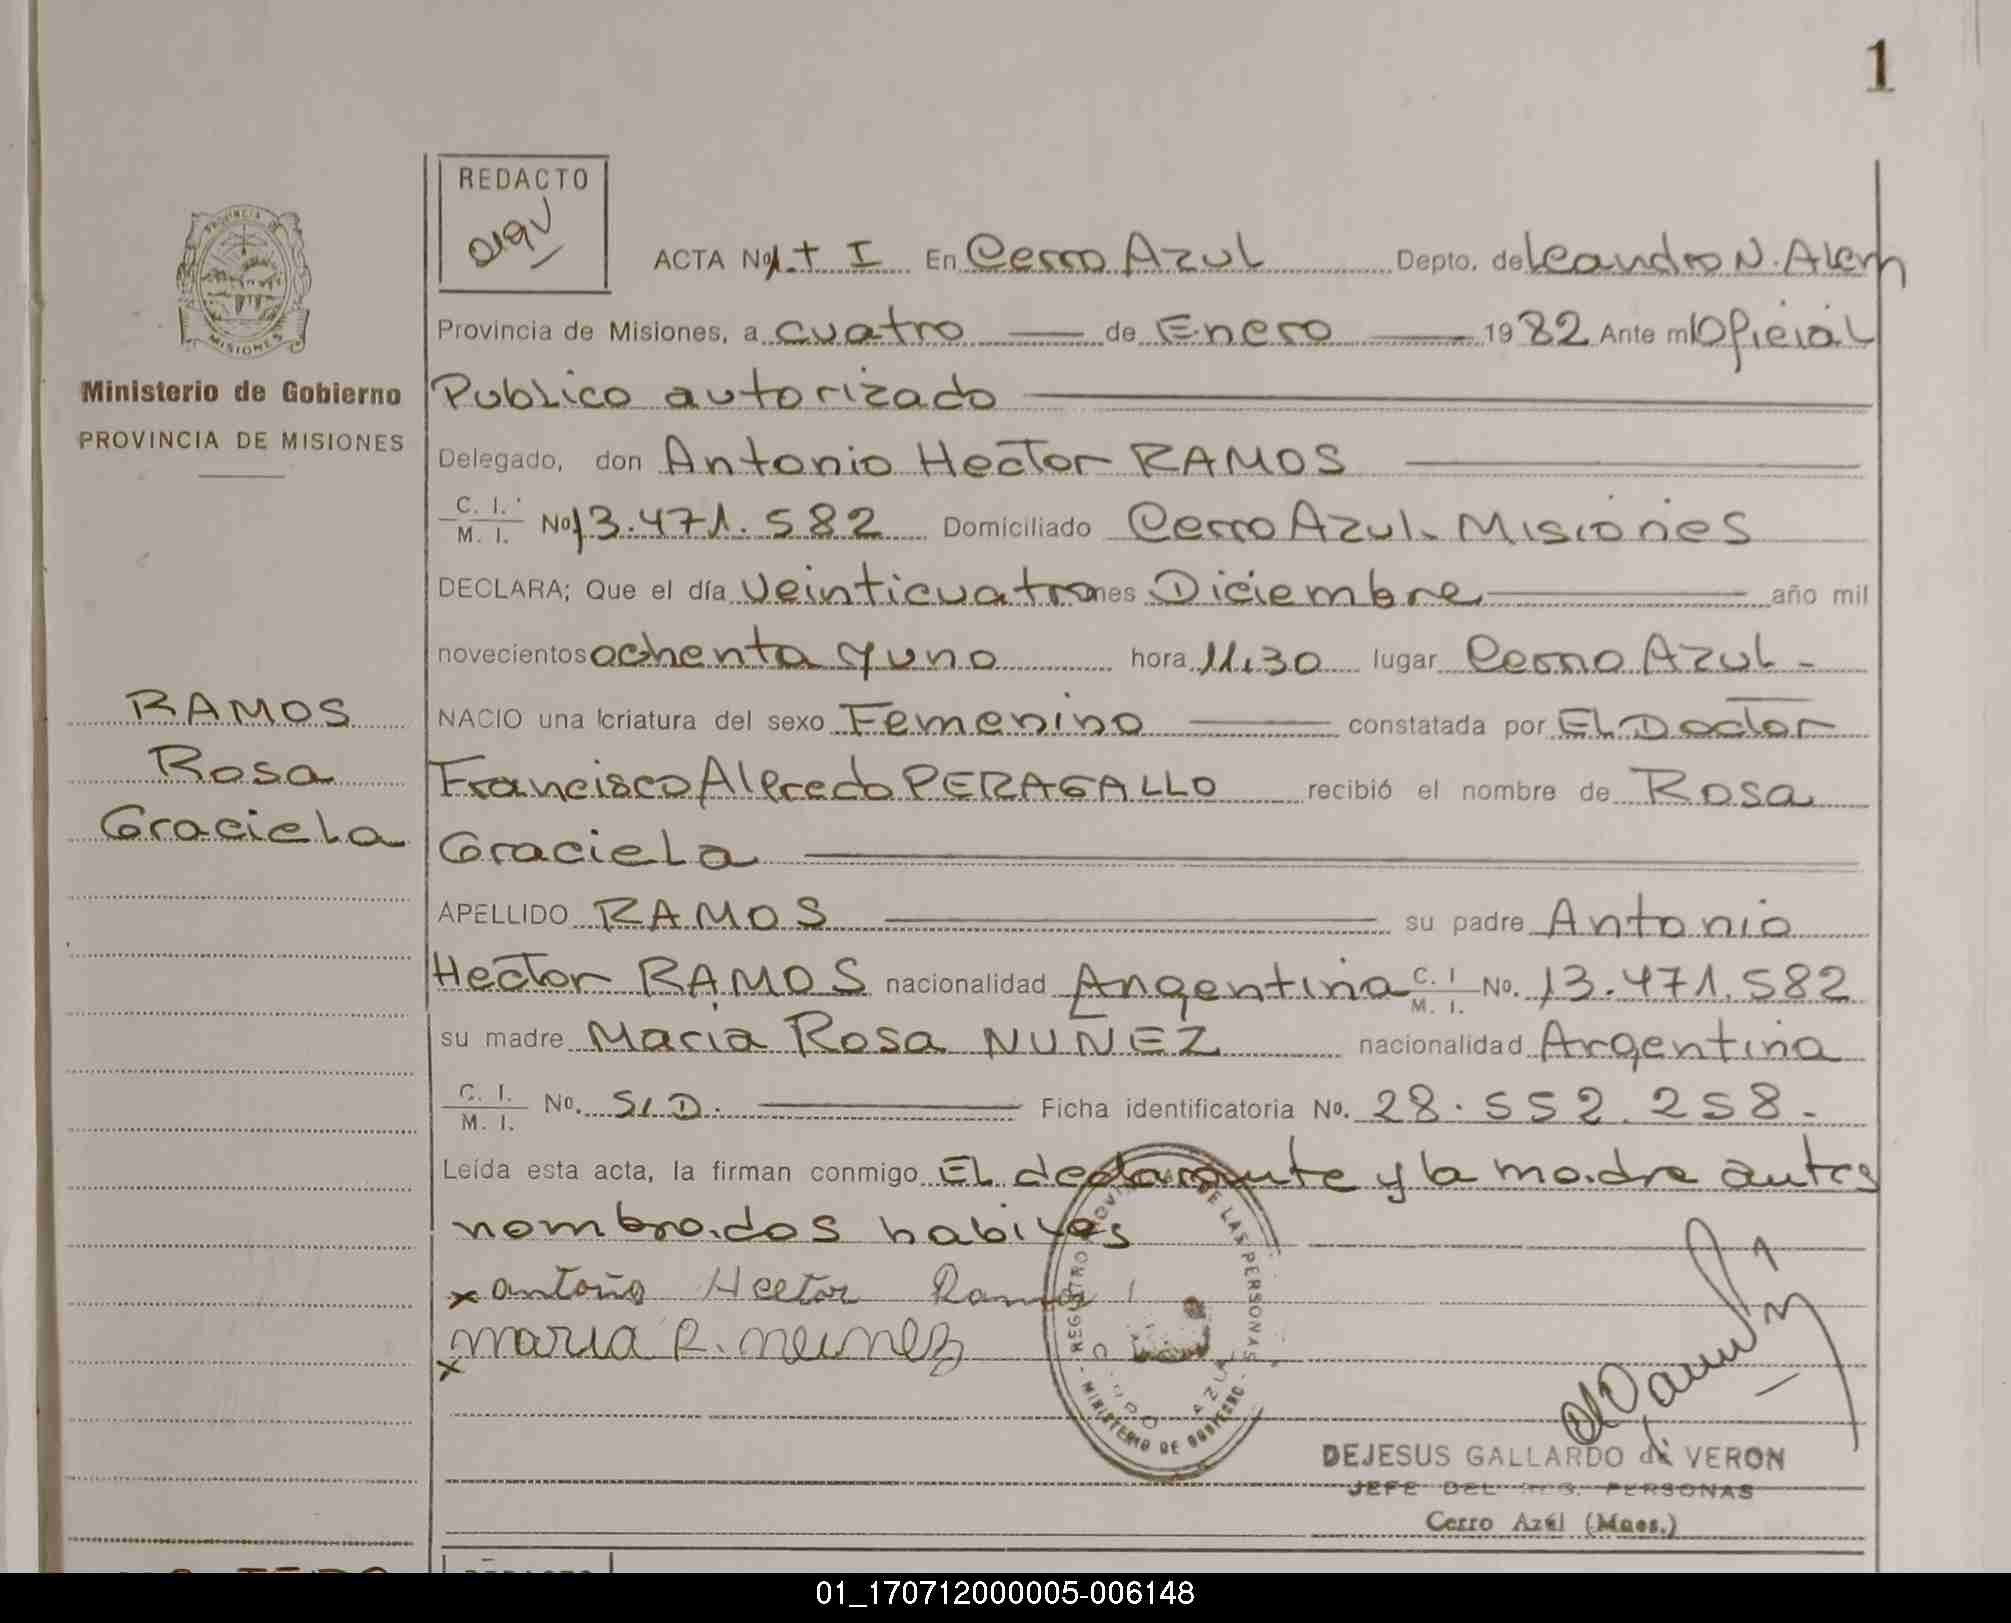 1
REDACTO
ACTA No 1.t I En Cerro Azul Depto. de Leandro N. Alem
Provincia de Misiones, a cuatro de Enero 1982 Ante mí Oficial
Publico autorizado
Delegado, don Antonio Hector RAMOS
C. I. M. I. No 13.471.582 Domiciliado Cerro Azul. Misiones
DECLARA; Que el día veinticuatro mes Diciembre año mil
novecientos ochenta y uno hora 11,30 lugar Cerro Azul -
NACIO una criatura del sexo Femenino constatada por El Doctor
Francisco Alfredo PERAGALLO recibió el nombre de Rosa
Graciela
APELLIDO RAMOS su padre Antonio
Hector RAMOS nacionalidad Argentina C. I M. I. No. 13.471.582
su madre Maria Rosa NUÑEZ nacionalidad Argentina
C. I. M. I. No. S/D. Ficha identificatoria No. 28.552.258.-
Leída esta acta, la firman conmigo El declarante y la madre antes
nombrados habiles
x antonio Hector Ramos
x maria R. nunez
PROVINCIA DE
MISIONES
Ministerio de Gobierno
PROVINCIA DE MISIONES
RAMOS
Rosa
Graciela
REGISTRO PROVINCIAL DE LAS PERSONAS
- MINISTERIO DE GOBIERNO -
CERRO AZUL
DEJESUS GALLARDO de VERON
JEFE DEL REG. PERSONAS
Cerro Azúl (Mnes.)
01_170712000005-006148